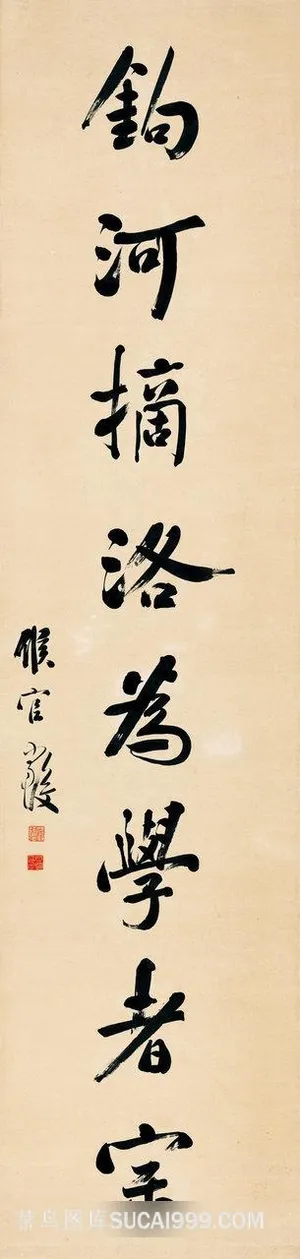 鉤河摘洛為學者宗
侯官
菜鸟图库 SUCAI999.COM